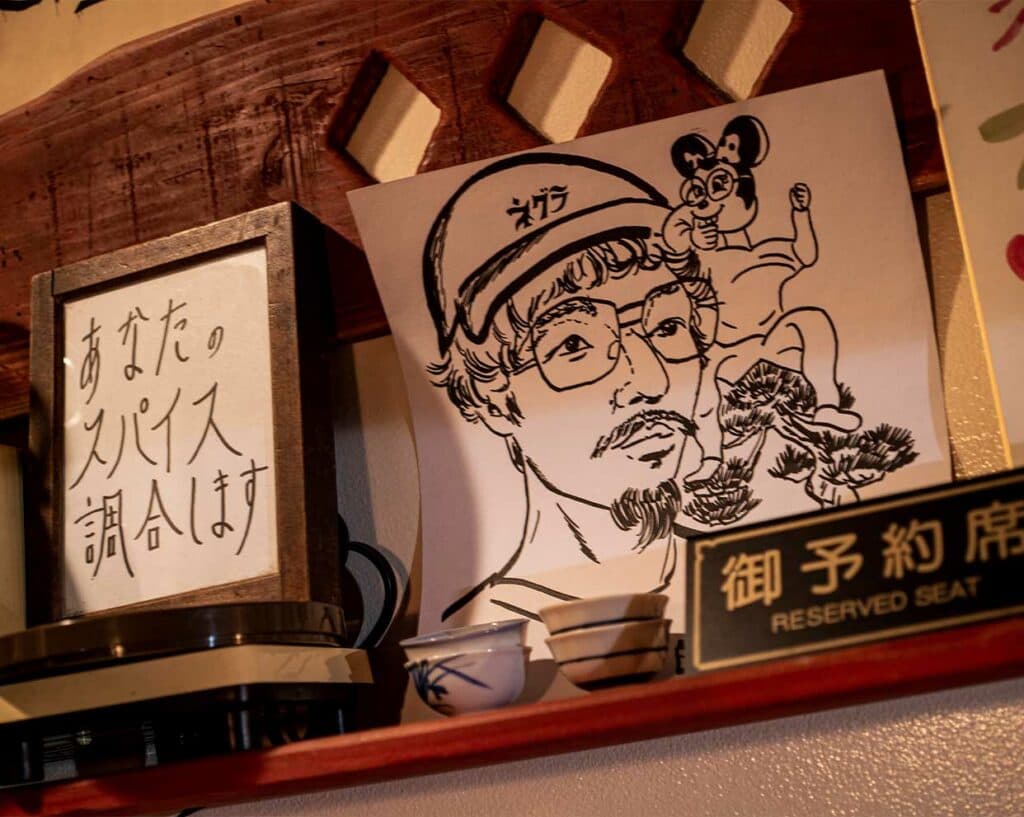 あなたの
スパイス
調合します
ネグラ
御予約席
RESERVED SEAT